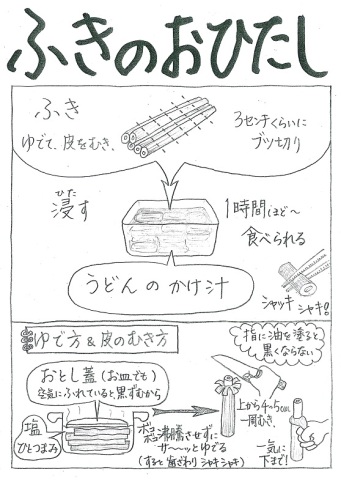 ふきのおひたし
ふき
ゆでて、皮をむき、
3センチくらいに
ブツ切り
ひた
浸す
1時間ほど〜
食べられる
うどんのかけ汁
シャッキ
シャキ!
ゆで方&皮のむき方
指に油を塗ると
黒くならない
おとし蓋(お皿でも)
空気にふれていると、黒ずむから
塩
ひとつまみ
沸騰させずに
ザ〜〜ッとゆでる
(すると歯ざわりシャキシャキ)
上から4〜5cm
一周むき、
一気に
下まで!